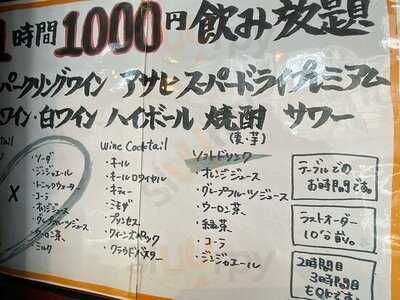 1時間1000円飲み放題
パークリングワイン アサヒスーパードライプレミアム
ワイン・白ワイン ハイボール 焼酎 サワー
(麦・芋)
tail
×
・ソーダ
・ジンジャエール
・トニックウォーター
・コーラ
・オレンジジュース
・グレープフルーツジュース
・ウーロン茶
・ミルク
Wine Cocktail
・キール
・キールロワイヤル
・キティー
・ミモザ
・プリンセス
・クイーンズロック
・クラウドバスター
ソフトドリンク
・オレンジジュース
・グレープフルーツジュース
・ウーロン茶
・緑茶
・コーラ
・ジンジャエール
テーブルでの
お時間です。
ラストオーダー
10分前。
2時間目
3時間目
もOKです。